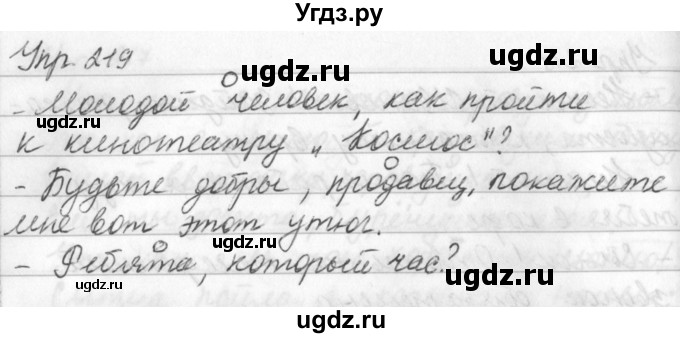 Угдз.ру
Упр. 219
- Молодой человек, как пройти
к кинотеатру „Космос"?
- Будьте добры, продавец, покажите
мне вот этот утюг.
- Ребята, который час?
ugdz.ru ugdz.ru ugdz.ru
ugdz.ru ugdz.ru
ugdz.ru ugdz.ru
ugdz.ru ugdz.ru